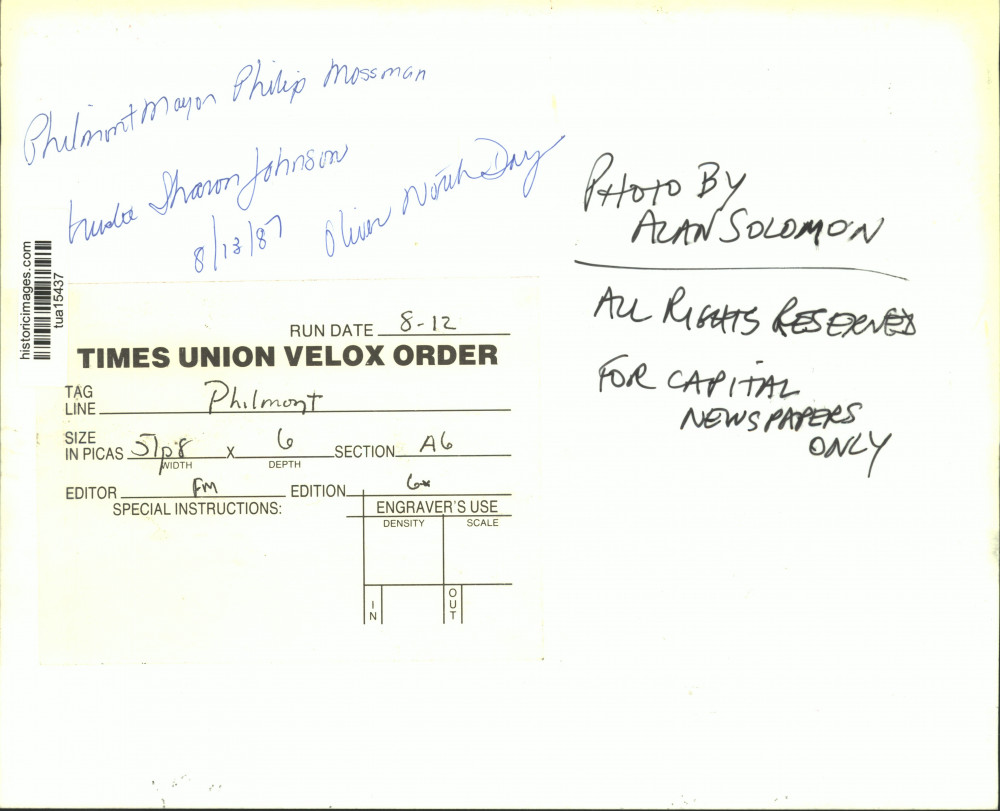 Philmont Mayor Philip Mossman
trustee Sharon Johnson
8/13/87 Oliver North Day
PHOTO BY
ALAN SOLOMON
ALL RIGHTS RESERVED
FOR CAPITAL
NEWSPAPERS
ONLY
historicimages.com
tua15437
RUN DATE 8-12
TIMES UNION VELOX ORDER
TAG
LINE Philmont
SIZE
IN PICAS 51p8 x 6 SECTION A6
WIDTH DEPTH
EDITOR FM EDITION
SPECIAL INSTRUCTIONS: ENGRAVER'S USE
DENSITY SCALE
IN OUT